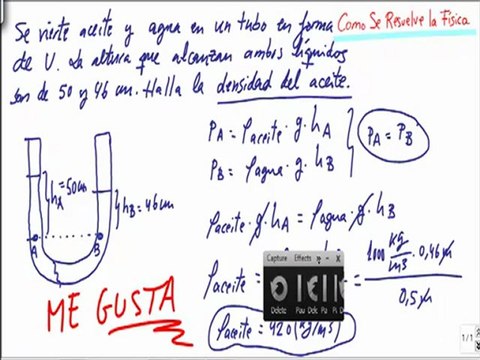 Se vierte aceite y agua en un tubo en forma
Como Se Resuelve la Física
de U. La altura que alcanzan ambos líquidos
son de 50 y 46 cm. Halla la densidad del aceite.
P_A = ρ_aceite · g · h_A
P_B = ρ_agua · g · h_B
P_A = P_B
h_A = 50cm
h_B = 46cm
A
B
ρ_aceite · g · h_A = ρ_agua · g · h_B
ρ_aceite =
1000 kg/m³ · 0,46 m
0,5 m
ρ_aceite = 920 (kg/m³)
ME GUSTA
Capture Effects
Delete Pau Dele Pa Pi Delete
1/1